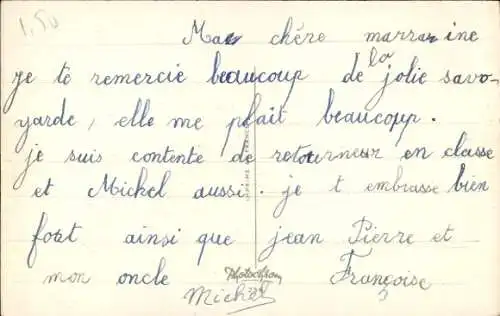 1.50
Ma chère marraine
je te remercie beaucoup de la jolie savo-
yarde, elle me plait beaucoup.
je suis contente de retourneur en classe
et Mickel aussi. je t embrasse bien
fort ainsi que jean Pierre et
mon oncle Françoise
Michel